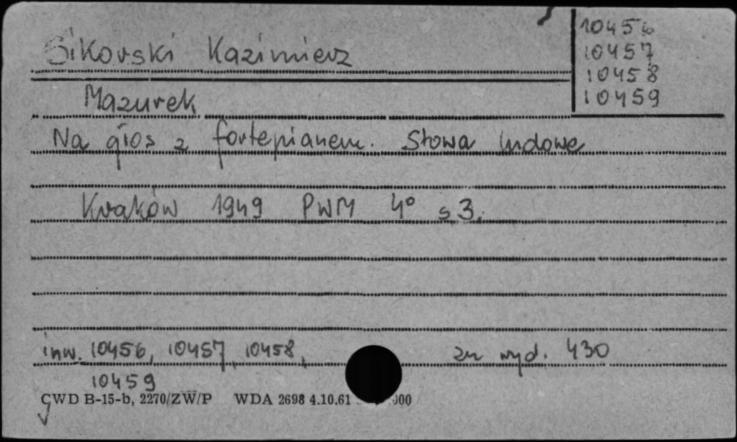 10456
10457
10458
10459
Sikorski Kazimierz
Mazurek
Na głos z fortepianem. Słowa ludowe
Kraków 1949 PWM 4° s 3.
inw. 10456, 10457, 10458,
10459
zn wyd. 430
CWD B-15-b, 2270/ZW/P WDA 2698 4.10.61 000